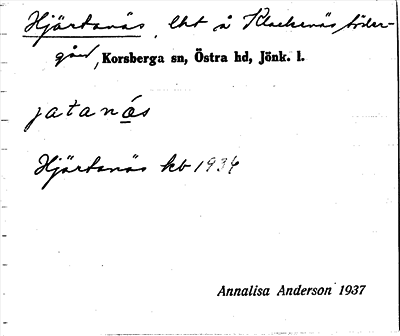 Hjärtanäs, lht å Klackenäs, Söder-
gård, Korsberga sn, Östra hd, Jönk. l.
jatanás
Hjärtanäs kb 1934
Annalisa Anderson 1937